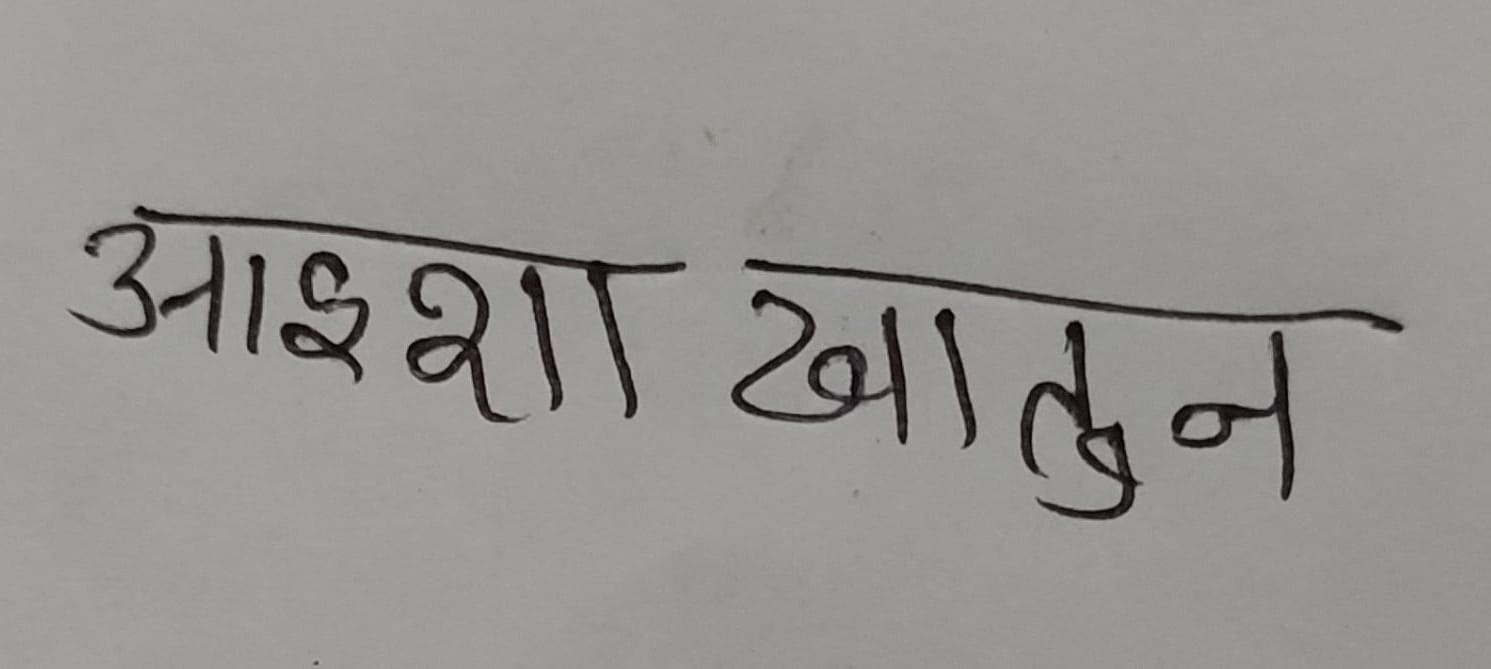 आइशा खातुन